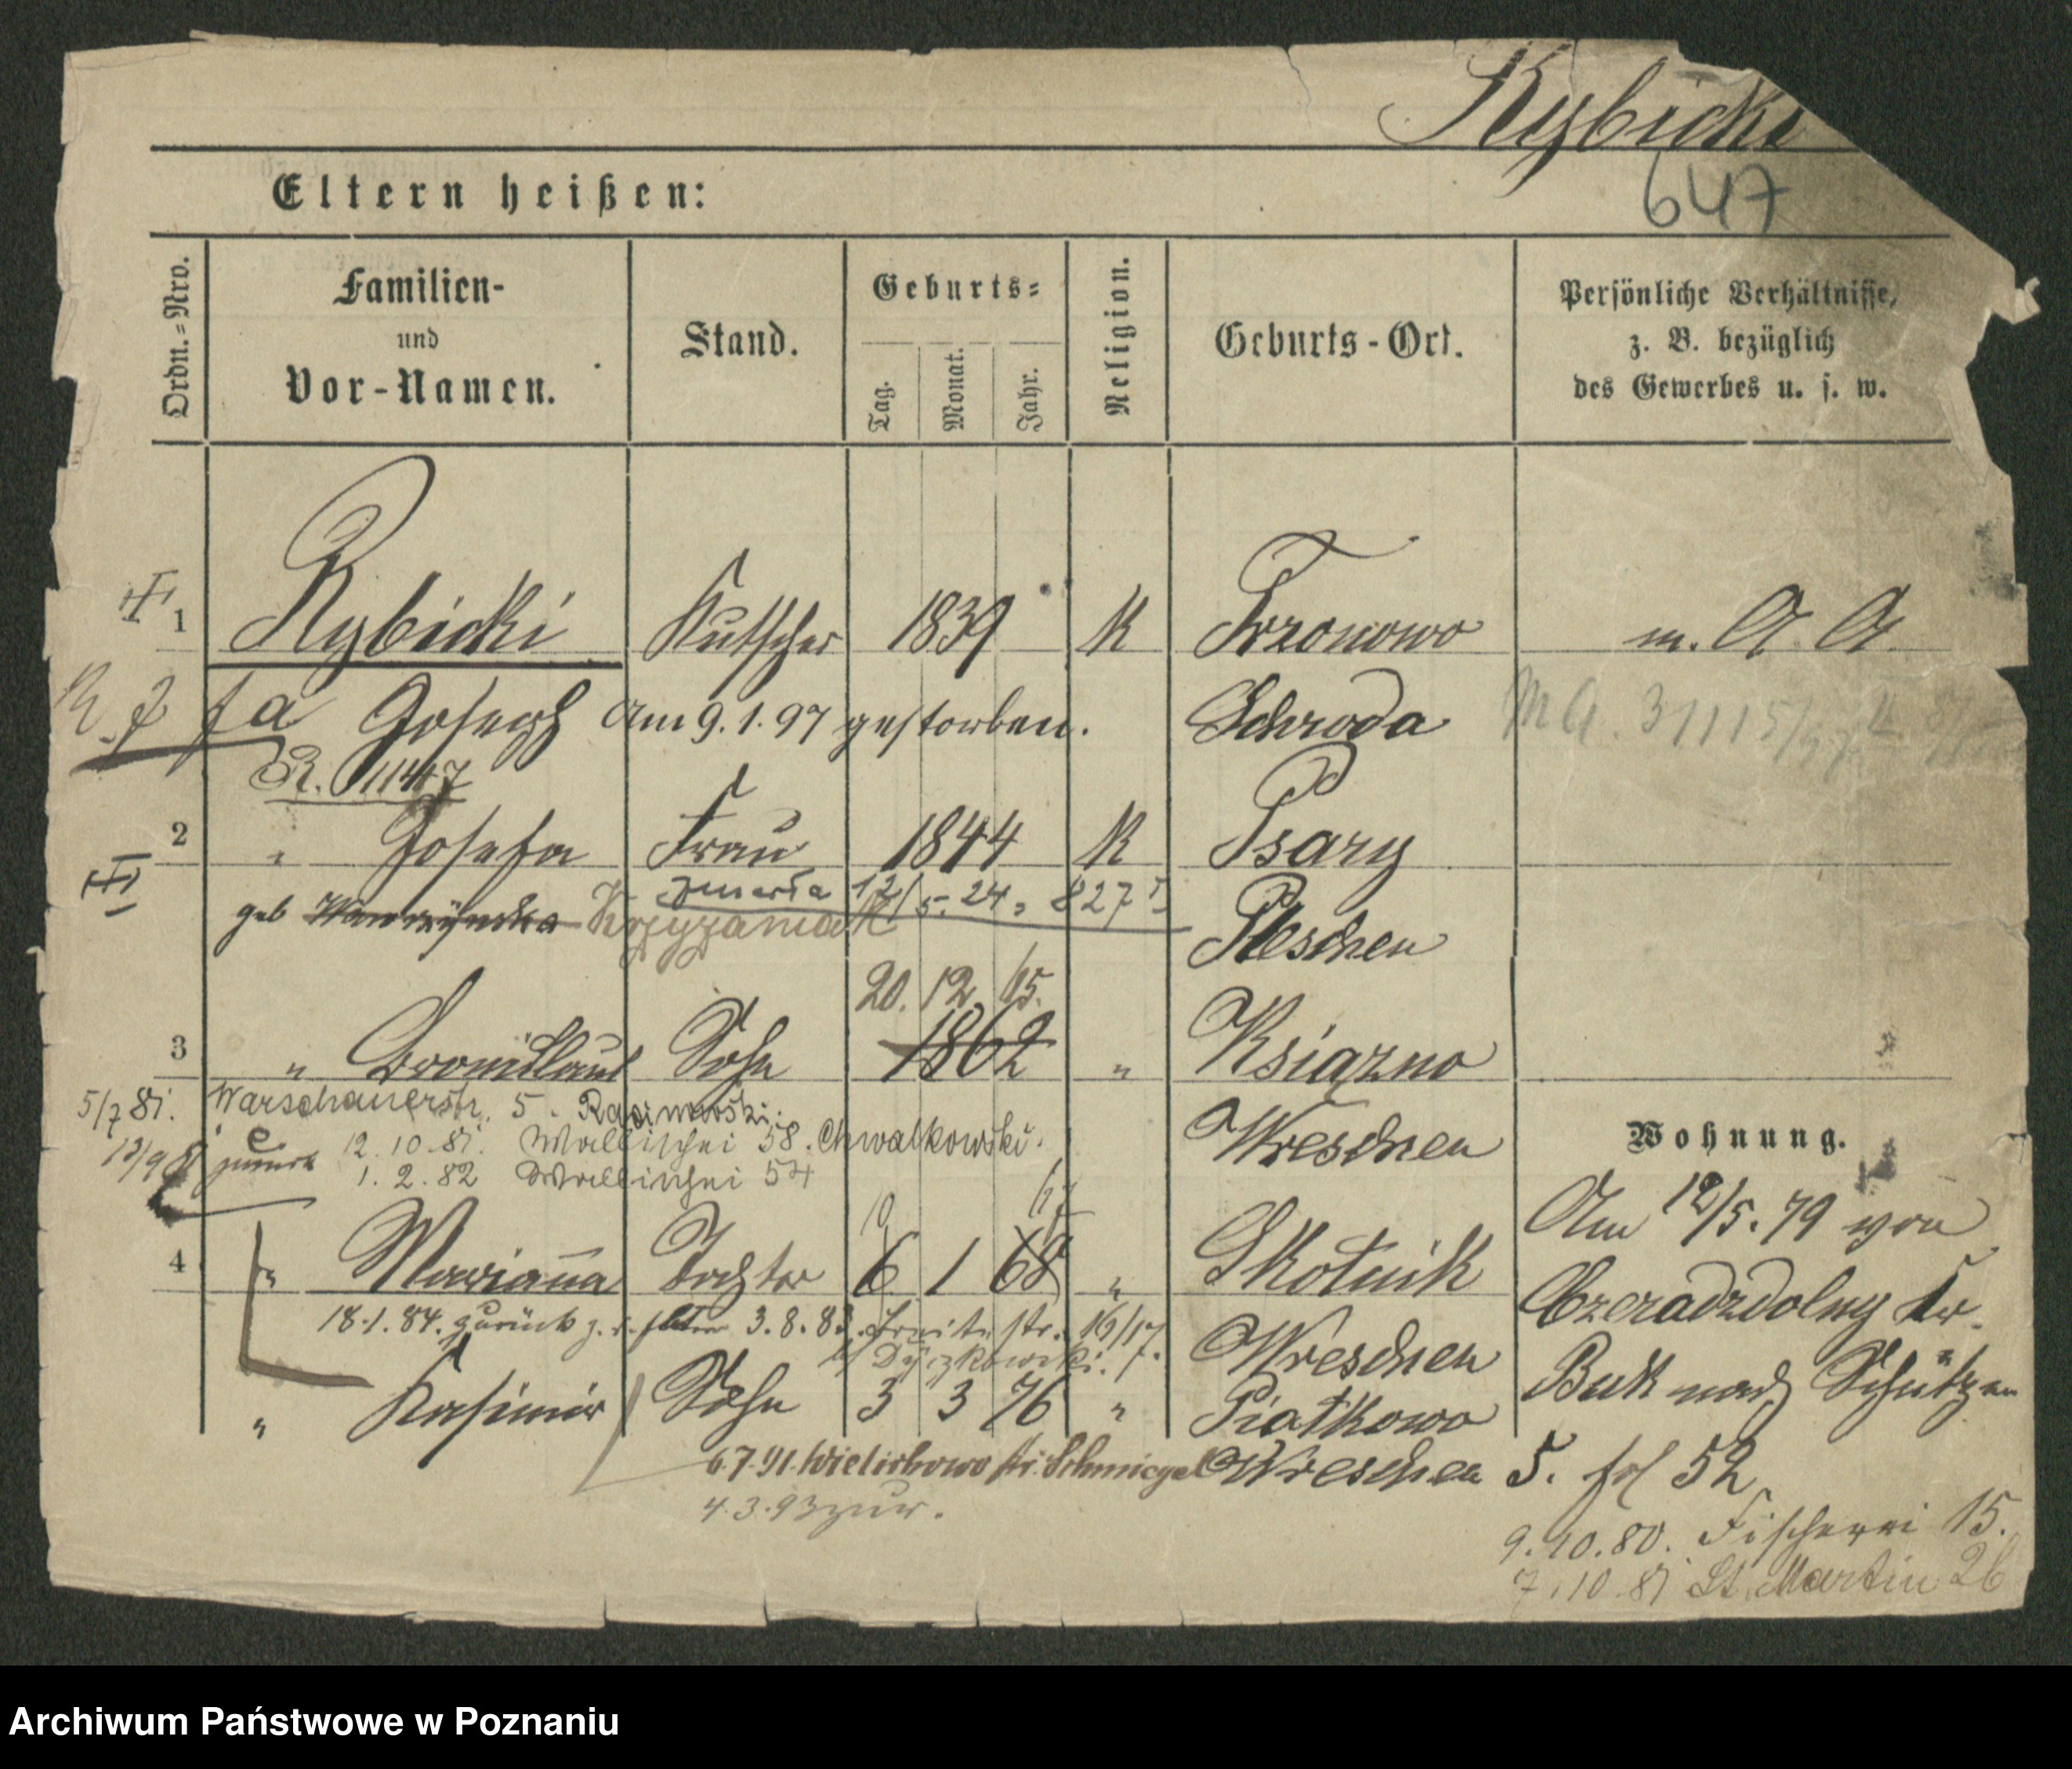 Rybicki
647
Eltern heißen:
Ordn.=Nro.
Familien-
und
Vor-Namen.
Stand.
Geburts=
Tag.
Monat.
Jahr.
Religion.
Geburts-Ort.
Persönliche Verhältnisse,
z. B. bezüglich
des Gewerbes u. s. w.
1 Rybicki Kutscher 1839 K m. A. A.
Joseph Am 9.1.97 gestorben. Schroda
R. 1147
2 " Josefa Frau 1844 K Psary
geb Krzyzaniak Pleschen
zmarła 12/5.24
20. 12. 65.
3 " Bronislaus Sohn 1862 " Ksiazno
5/7 81. Warschauerstr. 5.
Wreschen
12.10.81. Wallischei 58. Chwalkowski.
1.2.82 Wallischei 54
Wohnung.
Am 12/5.79 von
4 " Marianna Tochter 6 1 68 " Skotnik
18.1.84. zurück z. 3.8.83. str. 16/17
Wreschen
Buk nach Schützen
" Kasimir Sohn 3 3 76 " Piatkowo
6.7.91. Schmiegel Wreschen
5. 52
4.3.93 zur.
9.10.80. Fischerei 15.
7.10.81 St. Martin 26
Archiwum Państwowe w Poznaniu